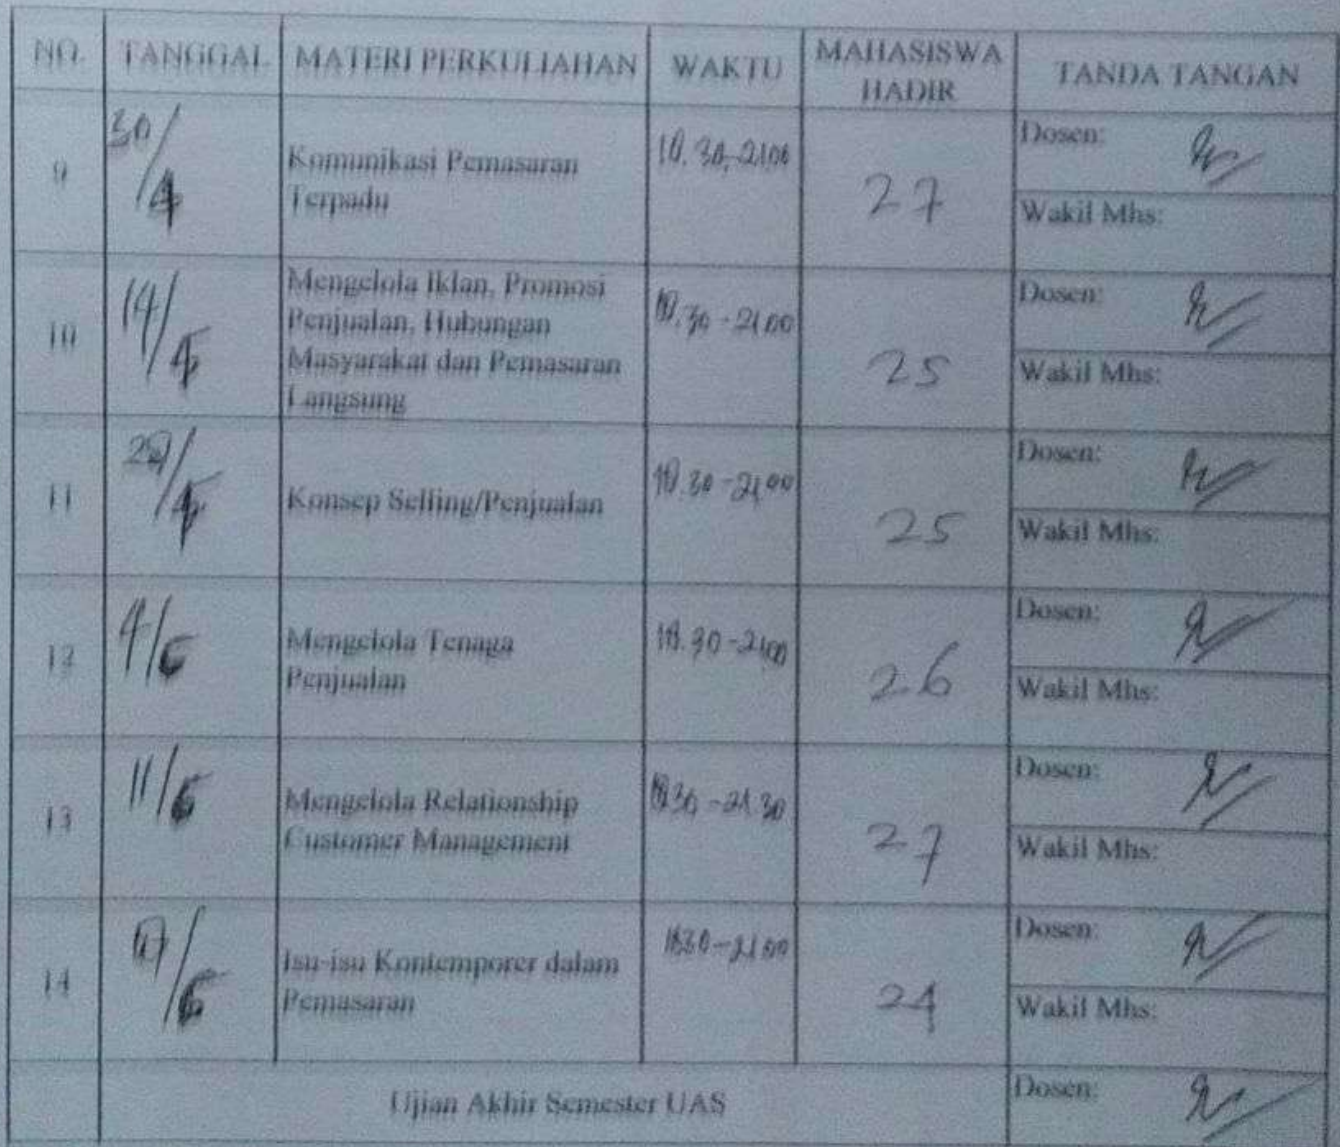 NO. TANGGAL MATERI PERKULIAHAN WAKTU MAHASISWA HADIR TANDA TANGAN
9 30/4 Komunikasi Pemasaran Terpadu 18.30-2100 27 Dosen:
Wakil Mhs:
10 Mengelola Iklan, Promosi
Penjualan, Hubungan
Masyarakat dan Pemasaran
Langsung
18.30-2100 25 Dosen:
Wakil Mhs:
11 Konsep Selling/Penjualan 18.30-2100 25 Dosen:
Wakil Mhs:
12 4/6 Mengelola Tenaga
Penjualan
18.30-2100 26 Dosen:
Wakil Mhs:
13 11/6 Mengelola Relationship
Customer Management
1830-21.30 27 Dosen:
Wakil Mhs:
14 Isu-isu Kontemporer dalam
Pemasaran
1830-2100 24 Dosen:
Wakil Mhs:
Ujian Akhir Semester UAS Dosen: